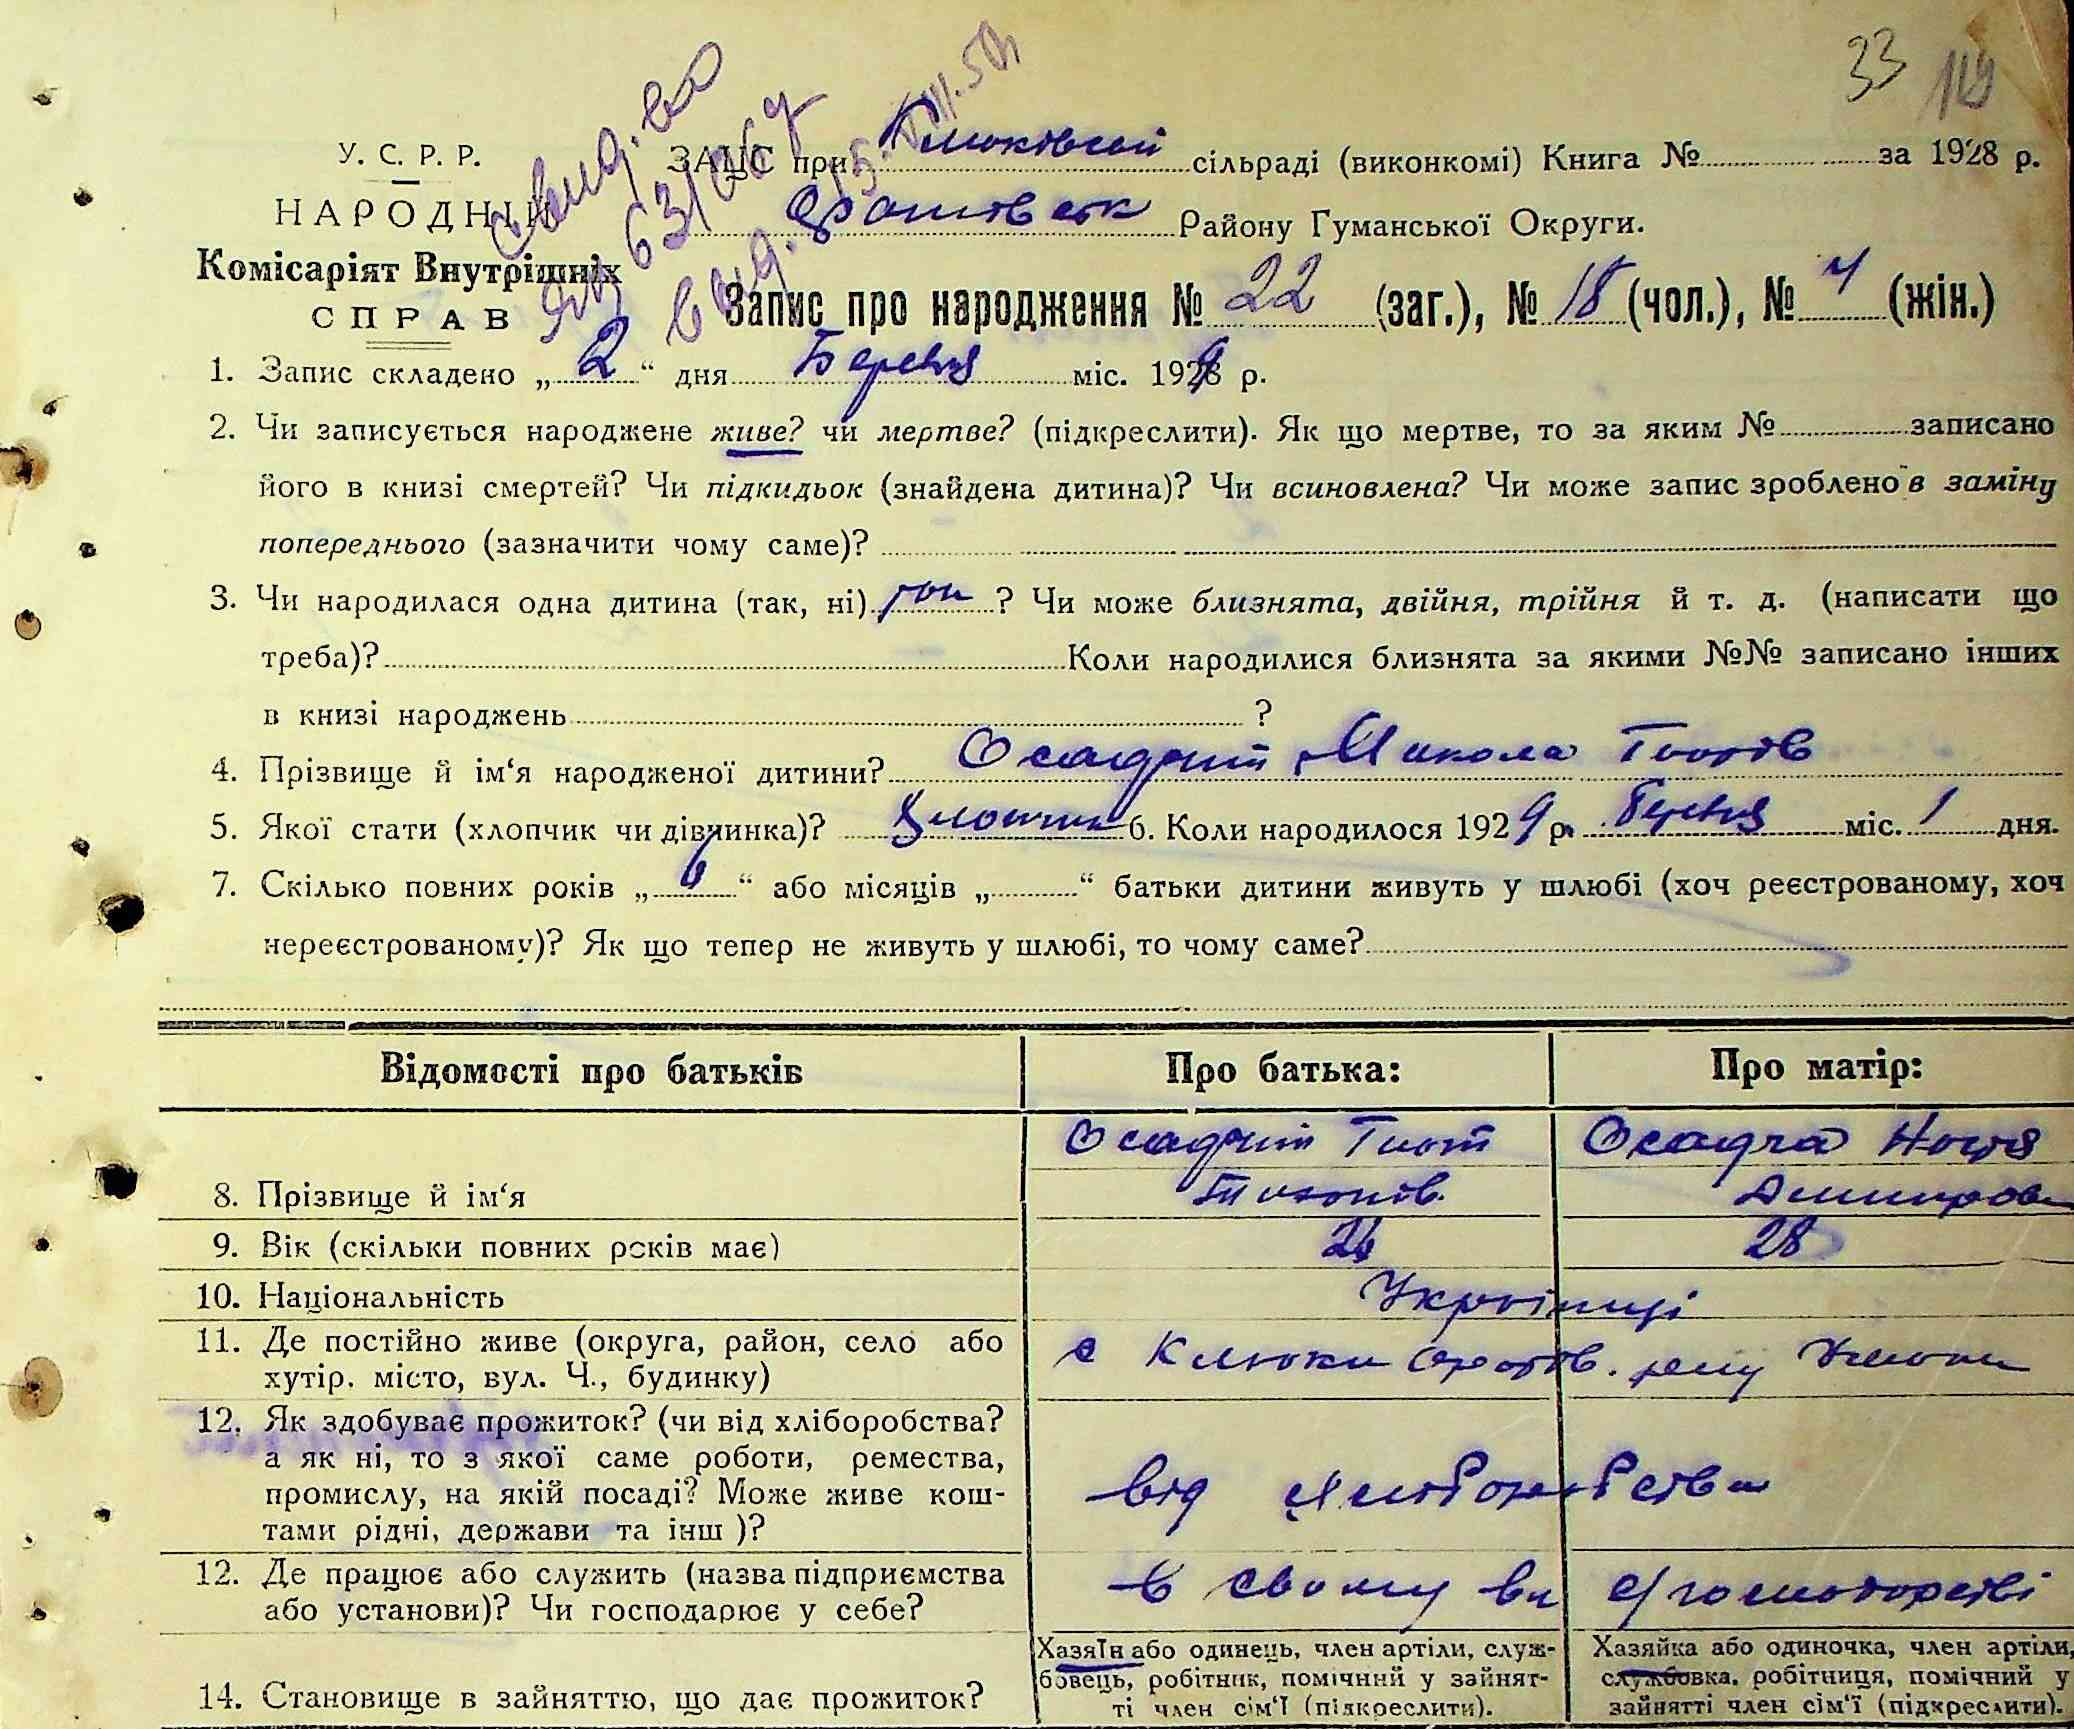 33 119
У. С. Р. Р.
ЗАЦС при Клюківській сільраді (виконкомі) Книга № за 1928 р.
НАРОДНІЙ
Району Гуманської Округи.
Комісаріят Внутрішніх
СПРАВ
Запис про народження № 22 (заг.), № 18 (чол.), № 4 (жін.)
1. Запис складено „ 2 “ дня Березня міс. 1929 р.
2. Чи записується народжене живе? чи мертве? (підкреслити). Як що мертве, то за яким № записано
його в книзі смертей? Чи підкидьок (знайдена дитина)? Чи всиновлена? Чи може запис зроблено в заміну
попереднього (зазначити чому саме)?
3. Чи народилася одна дитина (так, ні) так ? Чи може близнята, двійня, трійня й т. д. (написати що
треба)? Коли народилися близнята за якими №№ записано інших
в книзі народжень ?
4. Прізвище й ім‘я народженої дитини? Осадчий Микола
5. Якої стати (хлопчик чи дівчинка)? хлопчик 6. Коли народилося 1929 р. Березня міс. 1 дня.
7. Скілько повних років „ “ або місяців „ “ батьки дитини живуть у шлюбі (хоч реєстрованому, хоч
нереєстрованому)? Як що тепер не живуть у шлюбі, то чому саме?
Відомості про батьків Про батька: Про матір:
Осадчий Осадча
8. Прізвище й ім‘я
9. Вік (скільки повних років має) 28
10. Національність Українці
11. Де постійно живе (округа, район, село або
хутір, місто, вул. Ч., будинку) с Клюки
12. Як здобуває прожиток? (чи від хліборобства?
а як ні, то з якої саме роботи, ремества,
промислу, на якій посаді? Може живе кош-
тами рідні, держави та інш )? від хліборобства
12. Де працює або служить (назва підприємства
або установи)? Чи господарює у себе? в свому господарстві
14. Становище в зайняттю, що дає прожиток?
Хазяїн або одинець, член артіли, служ-
бовець, робітник, помічний у зайнят-
ті член сім‘ї (підкреслити).
Хазяйка або одиночка, член артіли,
службовка, робітниця, помічний у
зайнятті член сім‘ї (підкреслити).